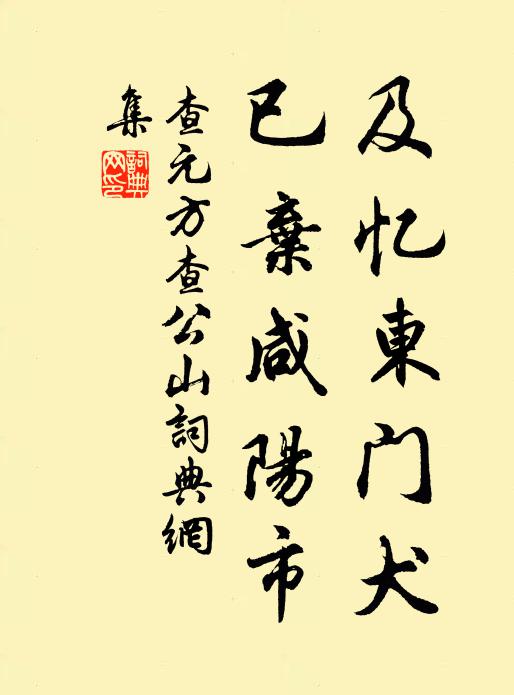 及忆東门犬
已棄咸陽市
查元方查公山詞典網
集
詞典网印